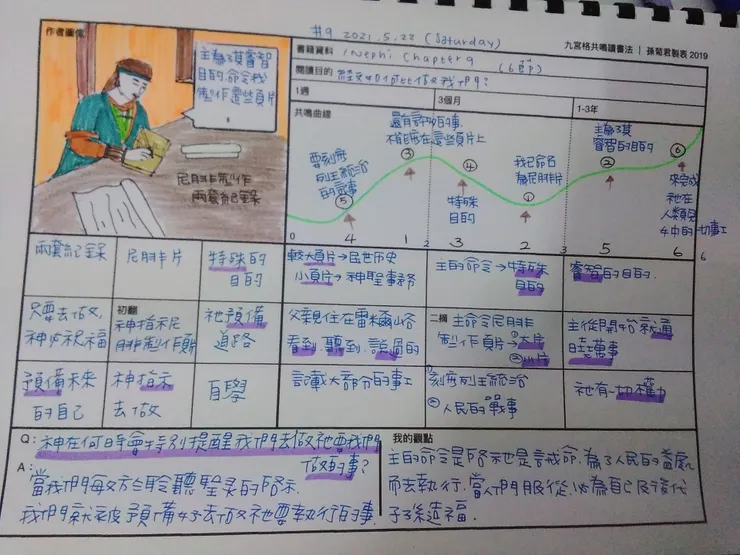 #9 2021.5.22 (Saturday)
作者畫像
主為了其睿智
目的命令我
製作這些頁片
。
尼腓製作
兩套紀錄
書籍資料 1Nephi Chapter 9 (6節)
九宮格共鳴讀書法 | 孫菊君製表 2019
閱讀目的
1週
3個月
1-3年
共鳴曲線
還有許多的事
不能寫在這些頁片上
③
曾刻寫
列王統治
的記事
⑤
④
特殊
目的
我已命名
為尼腓片
①
主為了其
睿智的目的
②
⑥
來完成
祂在
人類兒
女中的一切事工
0 4 1 2 3 2 3 5 6 6
兩套紀錄
尼腓片
特殊的
目的
較大頁片→民世歷史
小頁片→神聖事務
主的命令→特殊
目的
睿智的目的.
只要去做,
神必祝福
初翻
神指示尼
腓製作頁片
祂預備
道路
父親住在雷米爾山谷
看到 聽到 說過的
二摘 主命令尼腓
製作頁片 ①大片
②小片
主從開始就通
曉萬事
預備未來
的自己
神指示
去做
自學
記載大部分的事工
①刻寫列王統治
②人民的戰事
祂有一切權力
Q: 神在何時會特別提醒我們去做祂要我們
做的事?
A: 當我們每次在聆聽聖灵的啓示.
我們就被預備好去做祂要執行的事.
我的觀點
主的命令是啓示也是誡命.為了人民的益處
而去執行.當人們服從.必為自己及後代
子孫造福.